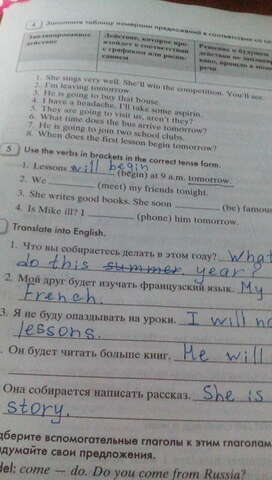 4 Заполните таблицу номерами предложений в соответствии со
Запланированное действие
Действие, которое произойдет в соответствии с графиком или расписанием
Решение о будущем
речи
1. She sings very well. She'll win the competition. You'll see.
2. I'm leaving tomorrow.
3. He is going to buy that house.
4. I have a headache. I'll take some aspirin.
5. They are going to visit us, aren't they?
6. What time does the bus arrive tomorrow?
7. He is going to join two school clubs.
8. When does the first lesson begin tomorrow?
5 Use the verbs in brackets in the correct tense form.
1. Lessons will begin (begin) at 9 a.m. tomorrow.
2. We (meet) my friends tonight.
3. She writes good books. She soon (be) famous
4. Is Mike ill? I (phone) him tomorrow.
Translate into English.
1. Что вы собираетесь делать в этом году? What
do this summer year?
2. Мой друг будет изучать французский язык. My
French.
3. Я не буду опаздывать на уроки. I will no
lessons.
Он будет читать больше книг. He will
Она собирается написать рассказ. She is
story.
дберите вспомогательные глаголы к этим глаголам
идумайте свои предложения.
del: come — do. Do you come from Russia?